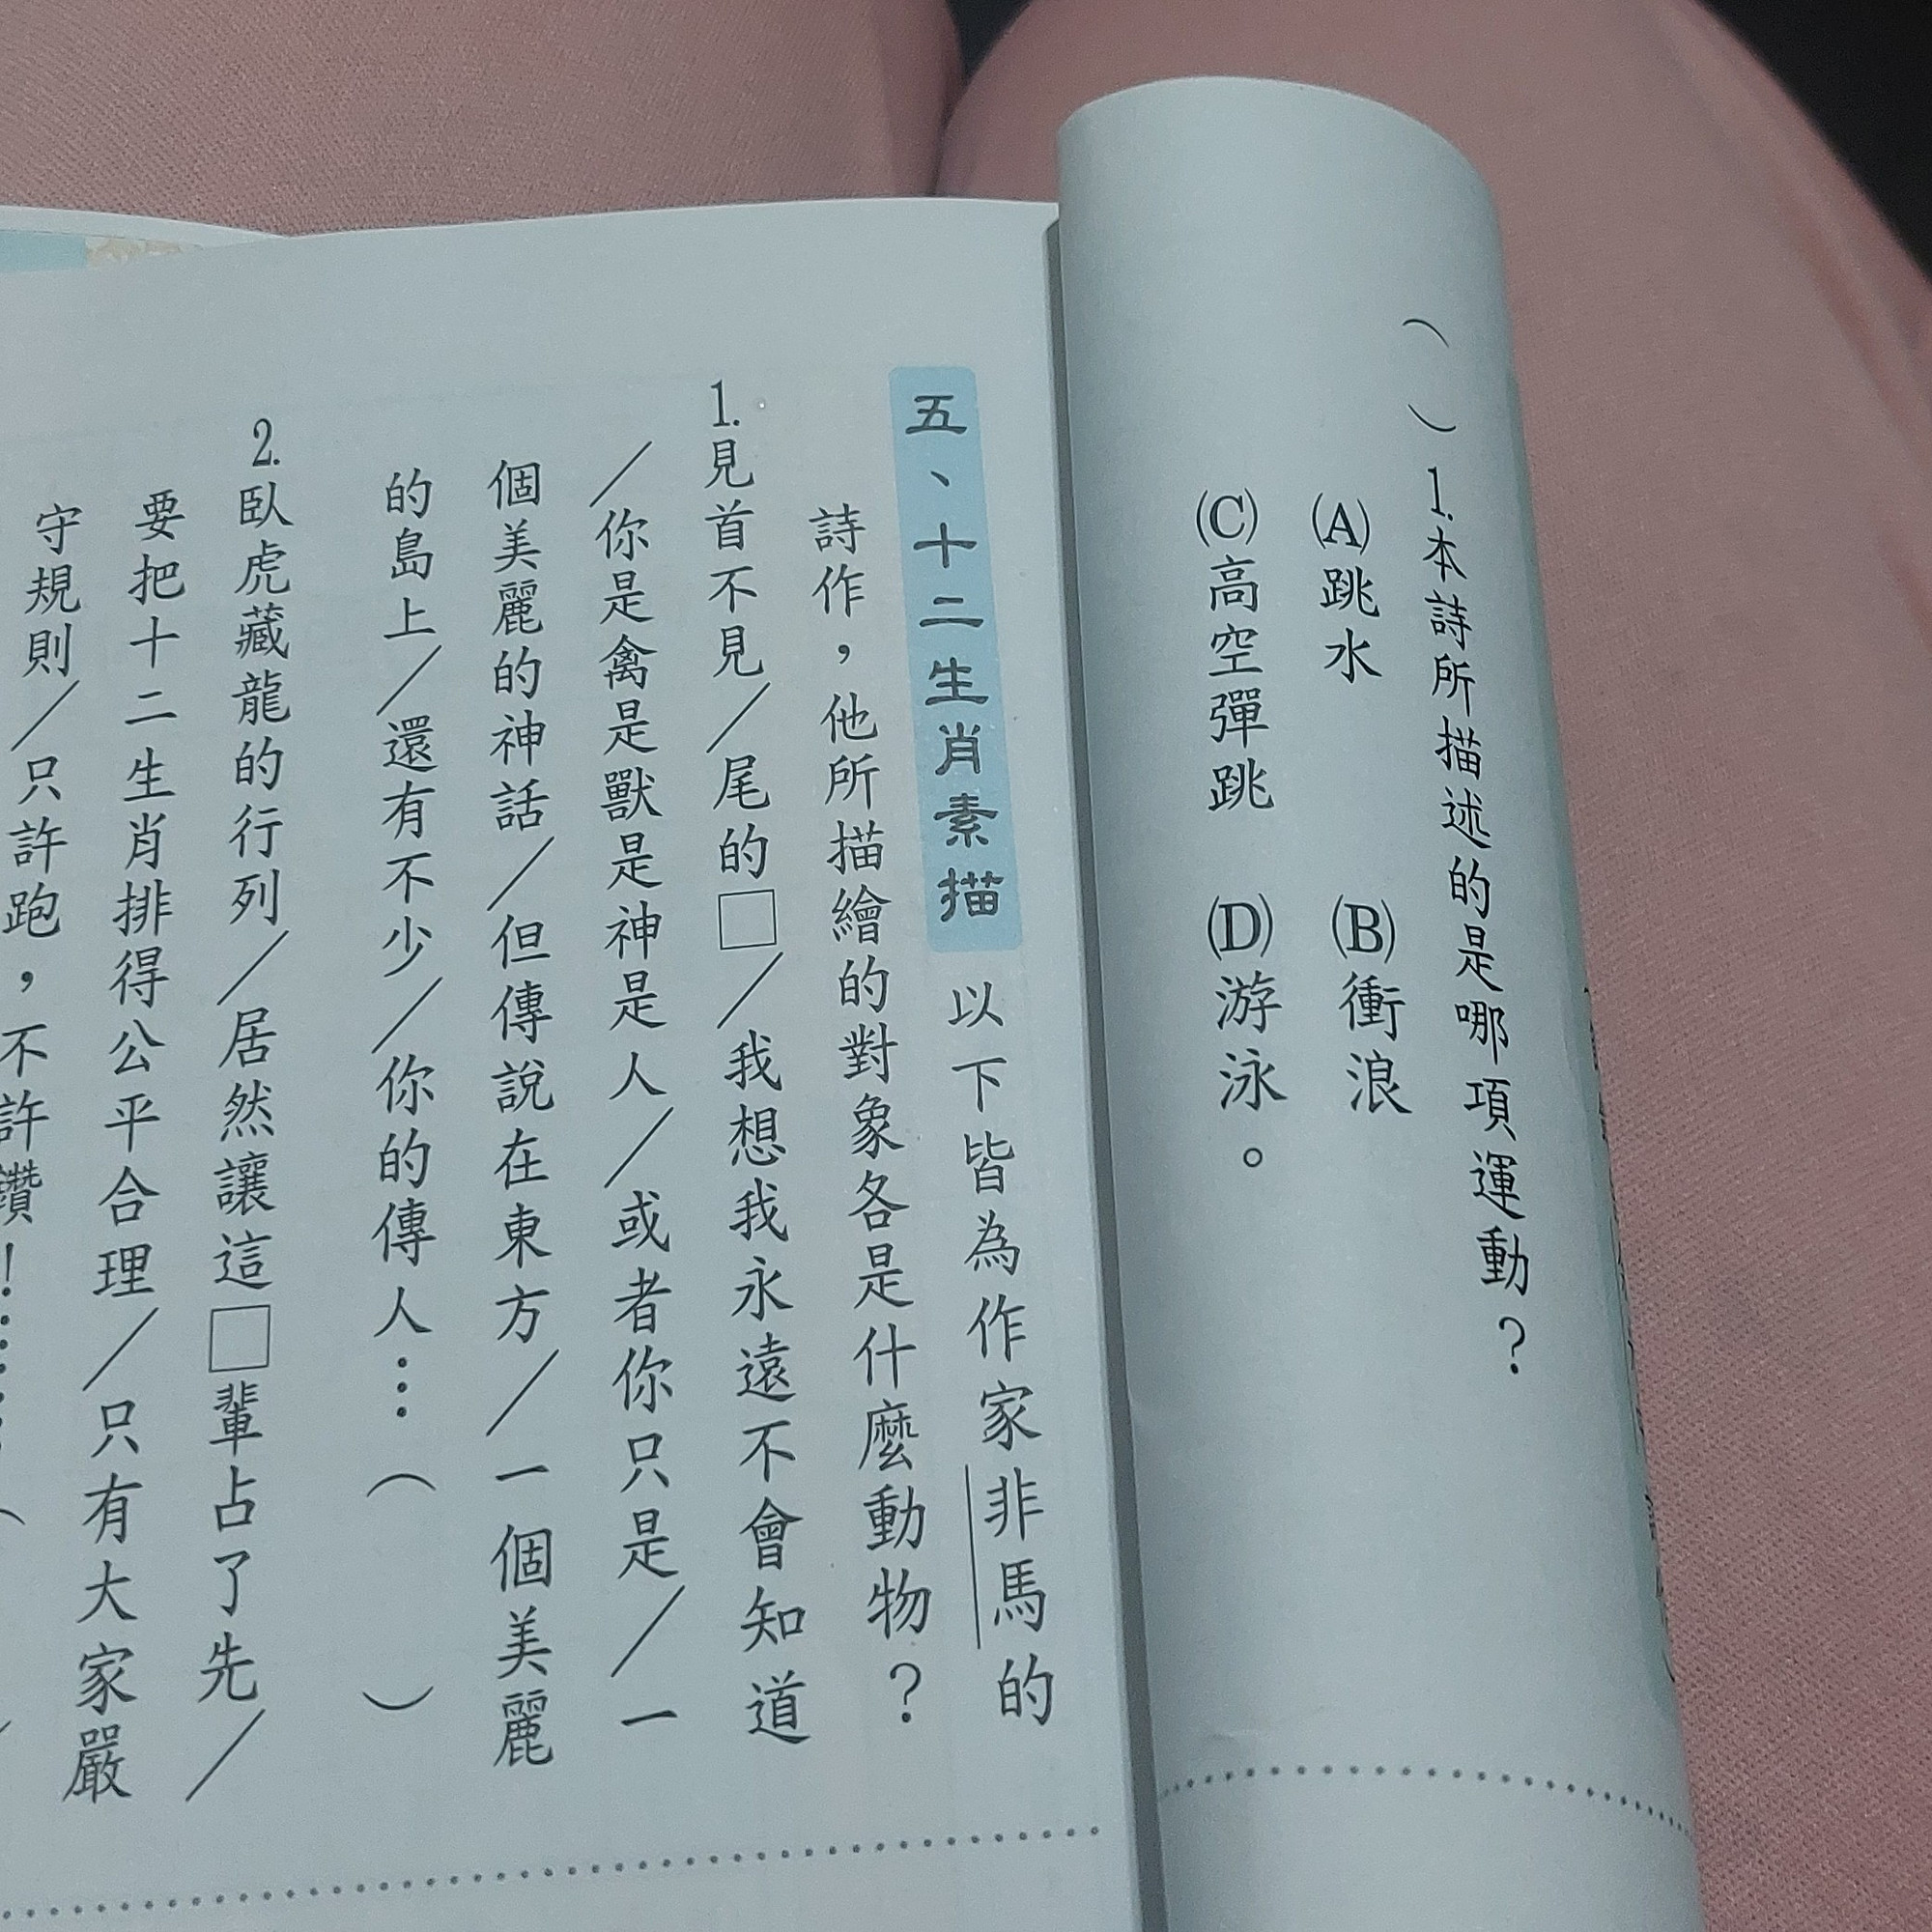 （　）1.本詩所描述的是哪項運動？
(A)跳水　(B)衝浪
(C)高空彈跳　(D)游泳。
五、十二生肖素描　以下皆為作家非馬的
詩作，他所描繪的對象各是什麼動物？
1.見首不見／尾的□／我想我永遠不會知道
／你是禽是獸是神是人／或者你只是／一
個美麗的神話／但傳說在東方／一個美麗
的島上／還有不少／你的傳人…（　）
2.臥虎藏龍的行列／居然讓這□輩占了先／
要把十二生肖排得公平合理／只有大家嚴
守規則／只許跑，不許鑽！……（